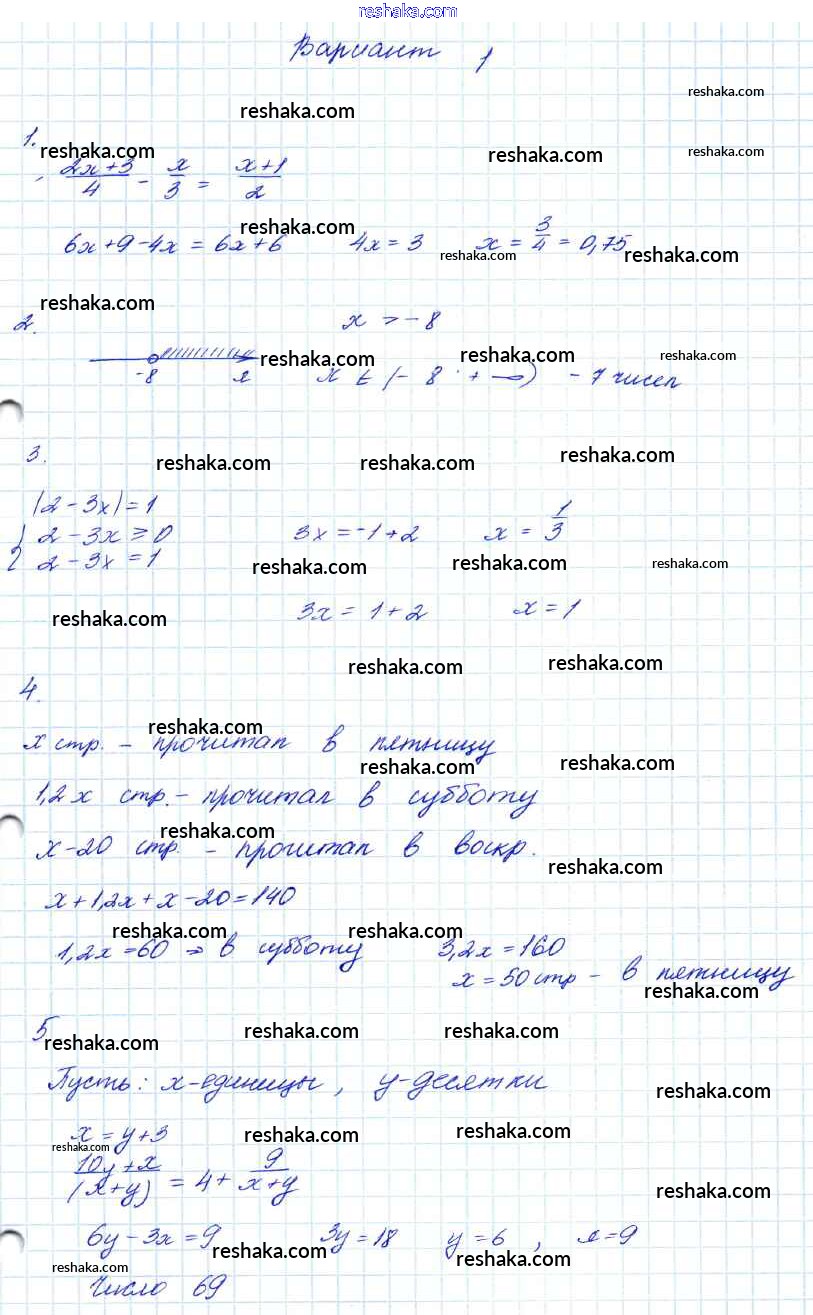 reshaka.com
Вариант 1
reshaka.com
reshaka.com
1.
reshaka.com
reshaka.com
reshaka.com
(2x+3)/4 - x/3 = (x+1)/2
reshaka.com
6x+9-4x = 6x+6 4x = 3 x = 3/4 = 0,75
reshaka.com
reshaka.com
reshaka.com
2. x > -8
reshaka.com
reshaka.com
reshaka.com
-8 x x ∈ (-8; +∞) -7 чисел
3.
reshaka.com
reshaka.com
reshaka.com
|2-3x| = 1
{ 2-3x ≥ 0 3x = -1+2 x = 1/3
2-3x = 1
reshaka.com
reshaka.com
reshaka.com
3x = 1+2 x = 1
reshaka.com
reshaka.com
reshaka.com
4.
reshaka.com
x стр. - прочитал в пятницу
reshaka.com
reshaka.com
1,2x стр. - прочитал в субботу
reshaka.com
x-20 стр. - прочитал в воскр.
reshaka.com
x+1,2x+x-20=140
reshaka.com
reshaka.com
1,2x = 60 => в субботу 3,2x = 160
x = 50 стр - в пятницу
reshaka.com
5
reshaka.com
reshaka.com
reshaka.com
Пусть: x-единицы, y-десятки
reshaka.com
x = y+3
reshaka.com
reshaka.com
reshaka.com
(10y+x)/(x+y) = 4 + 9/(x+y)
reshaka.com
6y-3x = 9 3y = 18 y = 6, x = 9
reshaka.com
reshaka.com
reshaka.com
Число 69